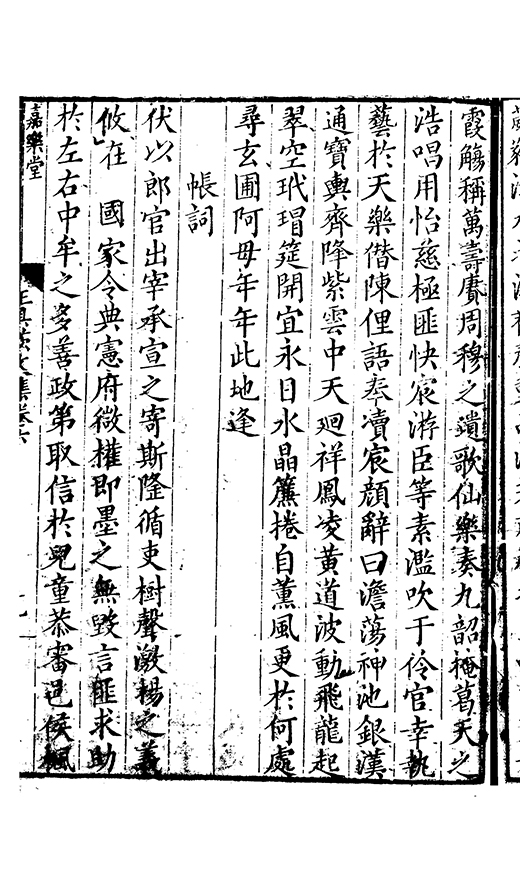 霞觴稱萬壽賡周穆之謡歌仙樂奏九韶掩葛天之
浩唱用怡慈極匪快宸游臣等素濫吹于伶官幸執
藝於天樂僭陳俚語恭瀆宸顔辭曰澹蕩神池銀漢
通寶輿齊降紫雲中天廻祥鳳凌黄道波動飛龍起
翠空玳瑁筵開宜永日水晶簾捲自薰風更於何處
尋玄圃阿母年年此地逢
帳詞
伏以郎官出宰承宣之寄斯隆循吏樹聲激揚之義
攸在 國家令典憲府徵權即墨之無毀言匪求助
於左右中牟之多善政第取信於兒童恭審邑侯楓
嘉樂堂